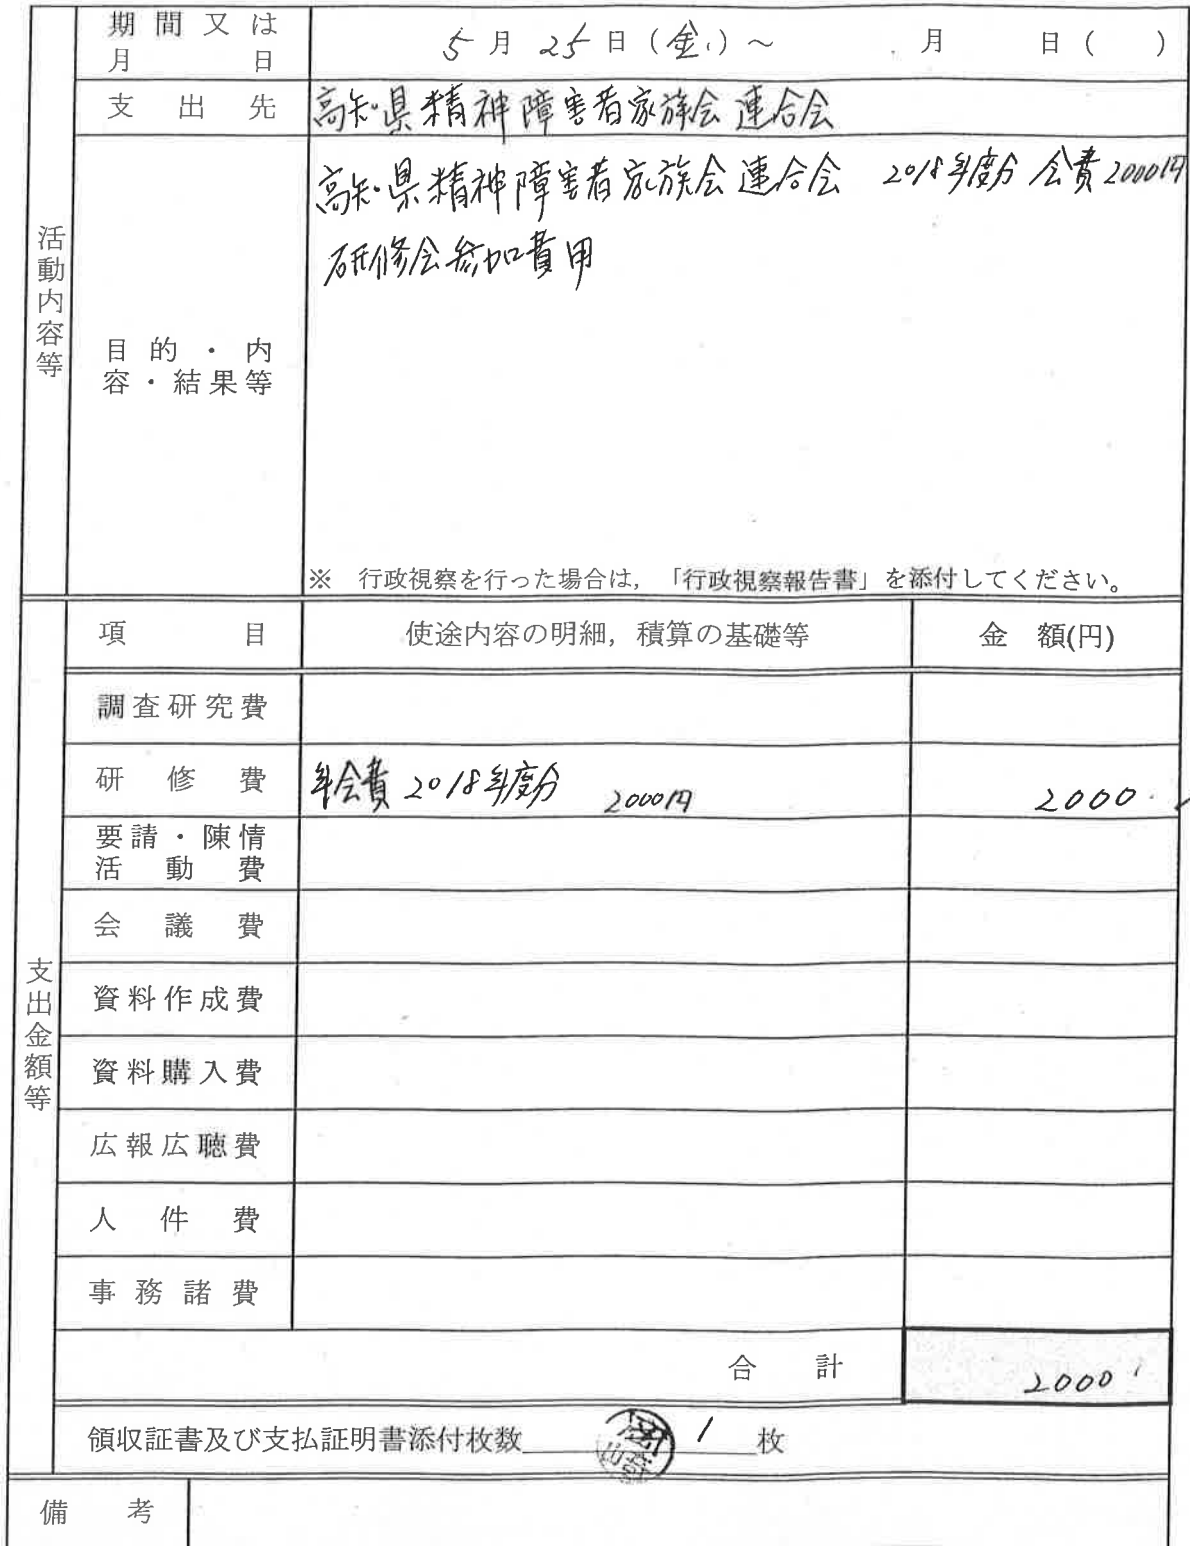 期間又は
月日
5月25日(金)~ 月 日( )
支出先
高知県精神障害者家族会連合会
活動内容等
目的・内
容・結果等
高知県精神障害者家族会連合会 2018年度分 会費2000円
研修会参加費用
※ 行政視察を行った場合は,「行政視察報告書」を添付してください。
項目 使途内容の明細,積算の基礎等 金 額(円)
支出金額等
調査研究費
研修費 年会費 2018年度分 2000円 2000
要請・陳情
活動費
会議費
資料作成費
資料購入費
広報広聴費
人件費
事務諸費
合計 2000
領収証書及び支払証明書添付枚数 1 枚
備考